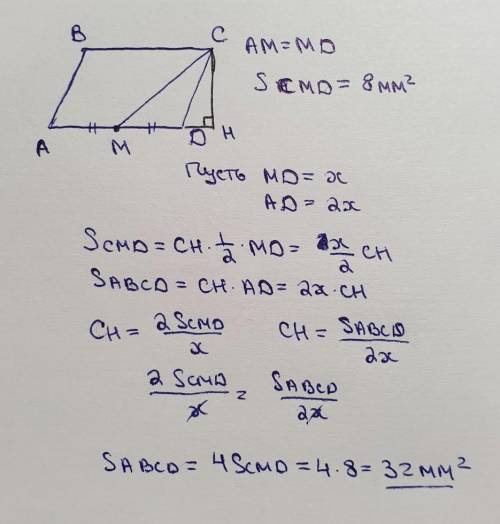 B C AM = MD
S CMD = 8 мм²
A M D H
Пусть MD = x
AD = 2x
SCMD = CH · 1/2 · MD = x/2 CH
SABCD = CH · AD = 2x · CH
CH = 2SCMD/x CH = SABCD/2x
2 SCMD/x = SABCD/2x
SABCD = 4SCMD = 4 · 8 = 32 мм²